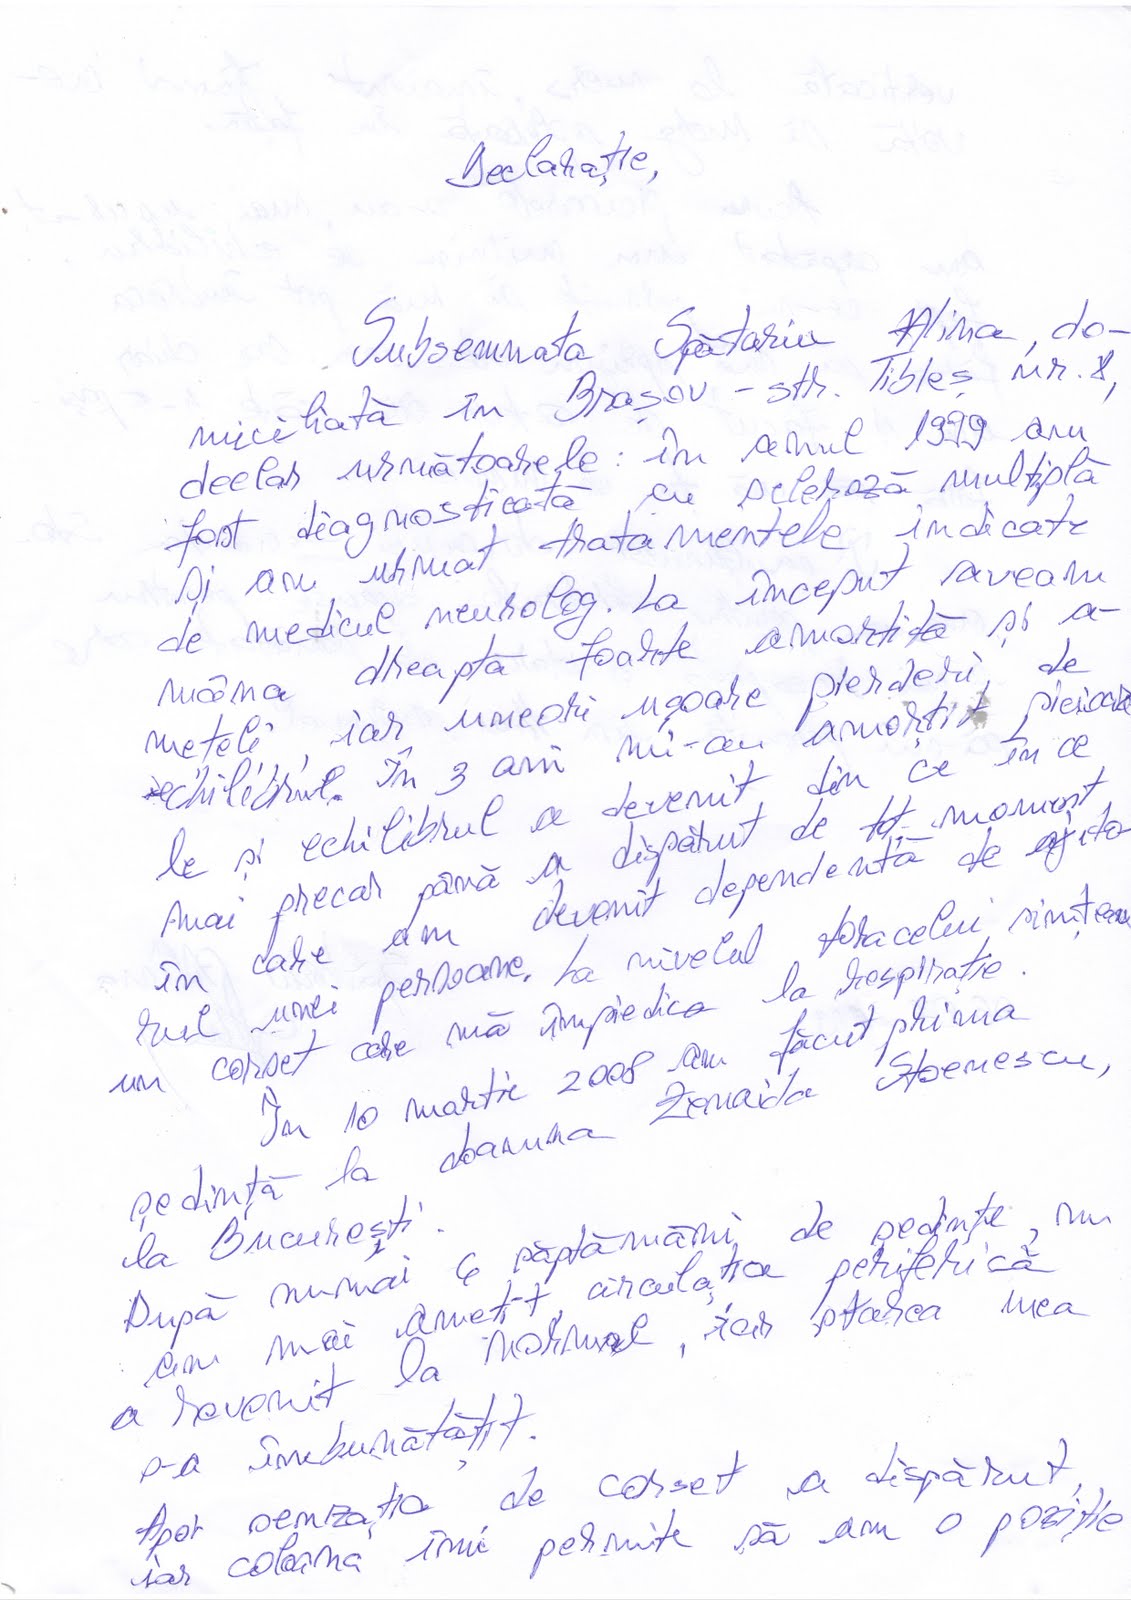 Declarație,
Subsemnata Spătariu Alina, do-
miciliată în Brașov - str. Țibleș nr. 8,
declar următoarele: în anul 1999 am
fost diagnosticată cu scleroză multiplă
și am urmat tratamentele indicate
de medicul neurolog. La început aveam
mâna dreaptă foarte amorțită și a-
mețeli, iar uneori ușoare pierderi de
echilibru. În 3 ani mi-au amorțit picioare
le și echilibrul a devenit din ce în ce
mai precar până a dispărut de tot, moment
în care am devenit dependentă de ajuto
rul unei persoane. La nivelul toracelui simțeam
un corset care mă împiedica la respirație.
În 10 martie 2008 am făcut prima
ședință la doamna Zenaida Stoenescu,
la București.
După numai 6 săptămâni de ședințe, nu
am mai amețit, circulația periferică
a revenit la normal, iar starea mea
s-a îmbunătățit.
Apoi senzația de corset a dispărut,
iar coloana îmi permite să am o poziție